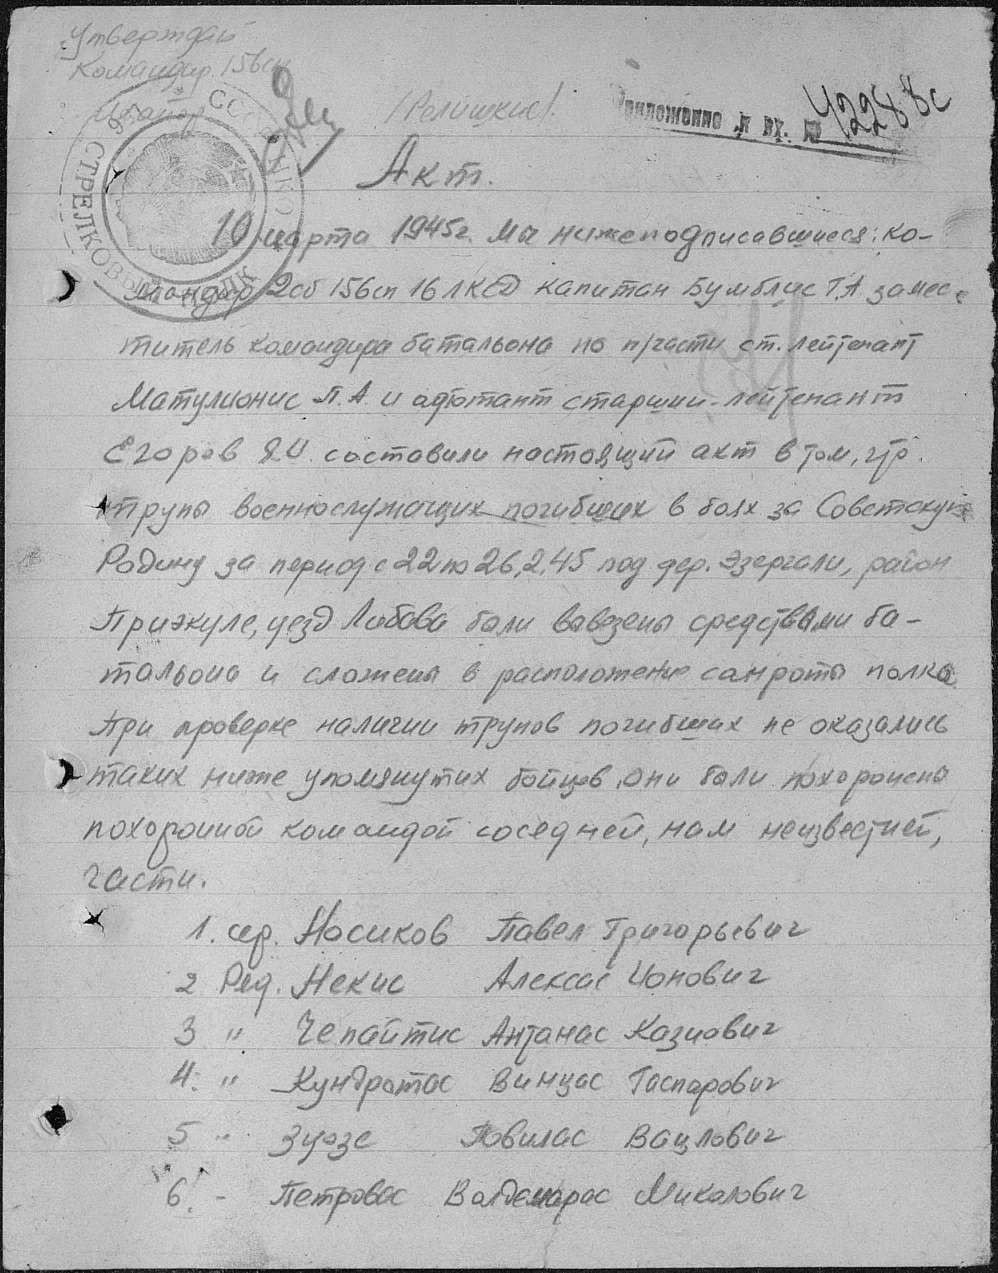 Утверждаю
Командир 156сп
Майор /Репишкис/.
СССР НКО
СТРЕЛКОВЫЙ ПОЛК
Приложение к вх. № 42288с
Акт.
10 марта 1945г. Мы нижеподписавшиеся: ко-
мандир 2сб 156сп 16ЛКСД капитан Бумблис Г.А замес-
титель командира батальона по п/части ст. лейтенант
Матулионис П.А. и адютант старший-лейтенант
Егоров составили настоящий акт в том, что
трупы военнослужащих погибших в боях за Советскую
Родину за период с 22 по 26.2.45 под дер. Эзергали, район
Приэкуле, уезд Либава были вывезены средствами ба-
тальона и сложены в расположение санроты полка.
При проверке наличии трупов погибших не оказались
таких ниже упомянутих бойцов, они были похоронена
похоронной командой соседней, нам неизвестней,
части.
1. сер. Носиков Павел Григорьевич
2 Ряд. Некис Алексас Ионович
3 " Чепайтис Антанас Казиович
4. " Кундротас Винцас Гаспарович
5 " Зуозе Повилас Вацлович
6. - Петровас Валдемарас Миколович